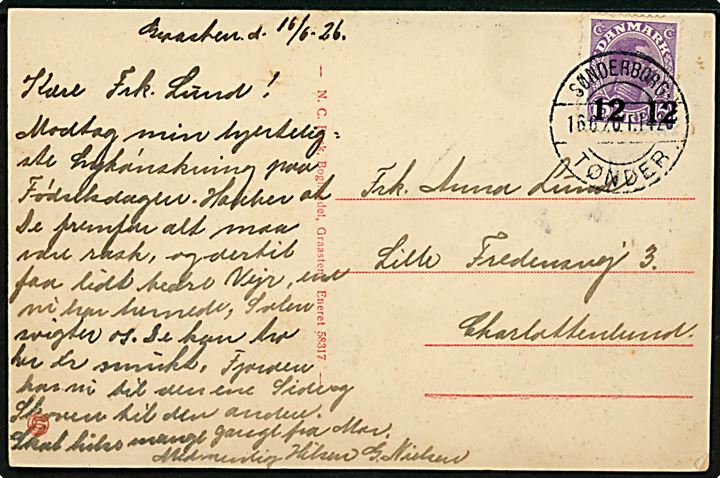 Graasten d. 16/6-26.
Kære Frk. Lund!
Modtag min hjertelig-
ste Lykønskning paa
Fødselsdagen. Haaber at
De fremfor alt maa
være rask, og dertil
faa lidt bedre Vejr, end
vi har hernede, Solen
svigter os. De kan tro
her er smukt, Fjorden
har vi til den ene Side og
Skoven til den anden.
Skal hilse mange gange fra Mor.
Med venlig Hilsen G. Nielsen
— N. C. Boghandel, Graasten. Eneret 58317 —
DANMARK
12 12
SØNDERBORG
16.6.26.
TØNDER
Frk. Anna Lund
Lille Fredensvej 3.
Charlottenlund.